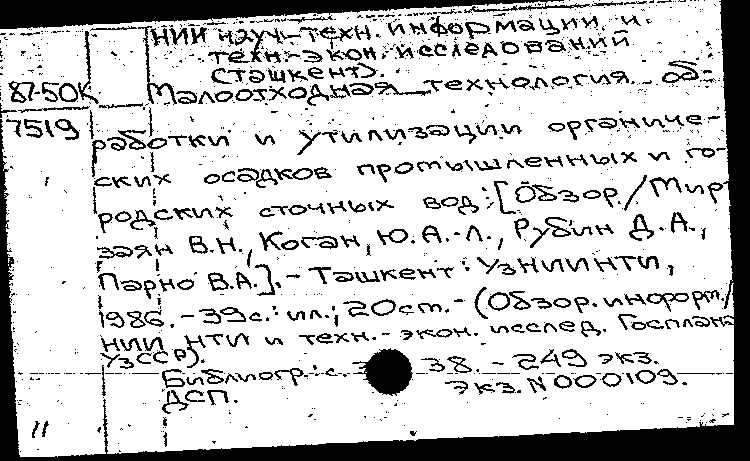 НИИ науч.-техн. информации и
техн.-экон. исследований
(Ташкент).
87-50К Малоотходная технология об-
7519 работки и утилизации органиче-
ских осадков промышленных и го-
родских сточных вод: [Обзор./Мир-
заян В.Н., Коган, Ю.А.-Л., Рубин Д.А.,
Парно В.А.].- Ташкент: УзНИИНТИ,
1986.-39с.: ил.; 20см.-(Обзор. информ./
НИИ НТИ и техн.-экон. исслед. Госплана
УзССР).
Библиогр.: с. 38.-249 экз.
ДСП. Экз. N 000109.
11